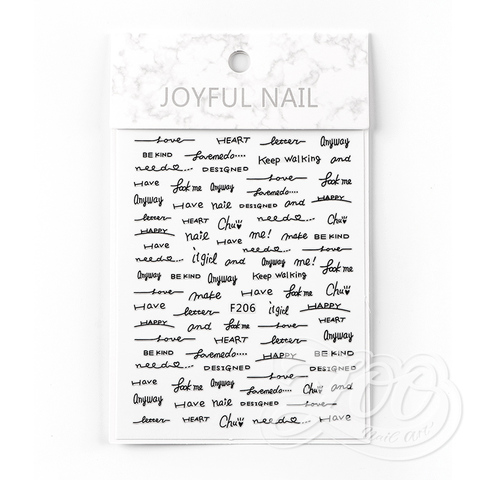 JOYFUL NAIL
Love HEART letter Anyway
BE KIND Lovemedo.... Keep Walking and
need DESIGNED
Have look me Love look me
Anyway Anyway Lovemedo....
Have nail DESIGNED and HAPPY
letter HEART Chu need Chu
HAPPY nail Have me! make BE KIND
Have need Love
it girl and Anyway me! look me
Anyway BE KIND Anyway Keep Walking
Love make Have look me Chu
Have letter F206 it girl HAPPY
HAPPY and look me letter HEART
Love HEART Anyway
BE KIND Lovemedo.... HAPPY BE KIND
need DESIGNED Love DESIGNED
Have look me Anyway Lovemedo.... Chu and
Anyway Have nail DESIGNED Love
letter HEART Chu need Have
ZOO
Nail Art